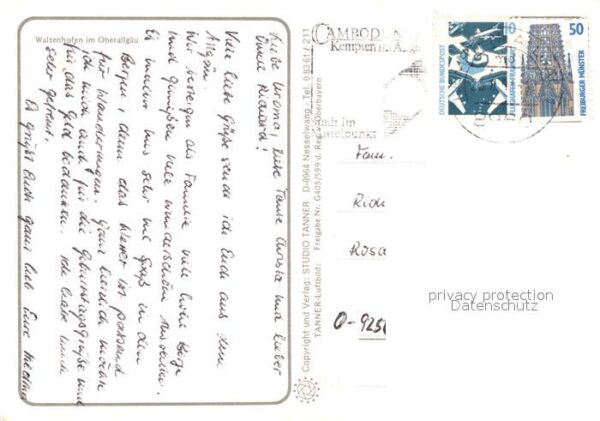 Waltenhofen im Oberallgäu
Liebe Uroma, liebe Tante Christa und lieber
Onkel Richard!
Viele liebe Grüße sende ich Euch aus dem
Allgäu.
Wir steigen als Familie viele hohe Berge
und genießen viele wunderschöne Aussichten.
Es macht uns sehr viel Spaß in den
Bergen, denn das Wetter ist passend
für Wanderungen. Ganz herzlich möchte
ich mich auch für die Geburtstagsgrüße und
für das Geld bedanken. Ich habe mich
sehr gefreut.
Es grüßt Euch ganz lieb Eure
Copyright und Verlag: STUDIO TANNER D-8964 Nesselwang - Tel. 0 83 61 / 211
TANNER-Luftbild: Freigabe Nr. G405/599 d. Reg. v. Oberbayern
CAMBODUN
Kempten im A
Stadt im
Mittelpunkt
DEUTSCHE BUNDESPOST
10
FLUGHAFEN FRANKFURT
50
FREIBURGER MÜNSTER
Fam.
Rich
Rosa
O-925
privacy protection
Datenschutz